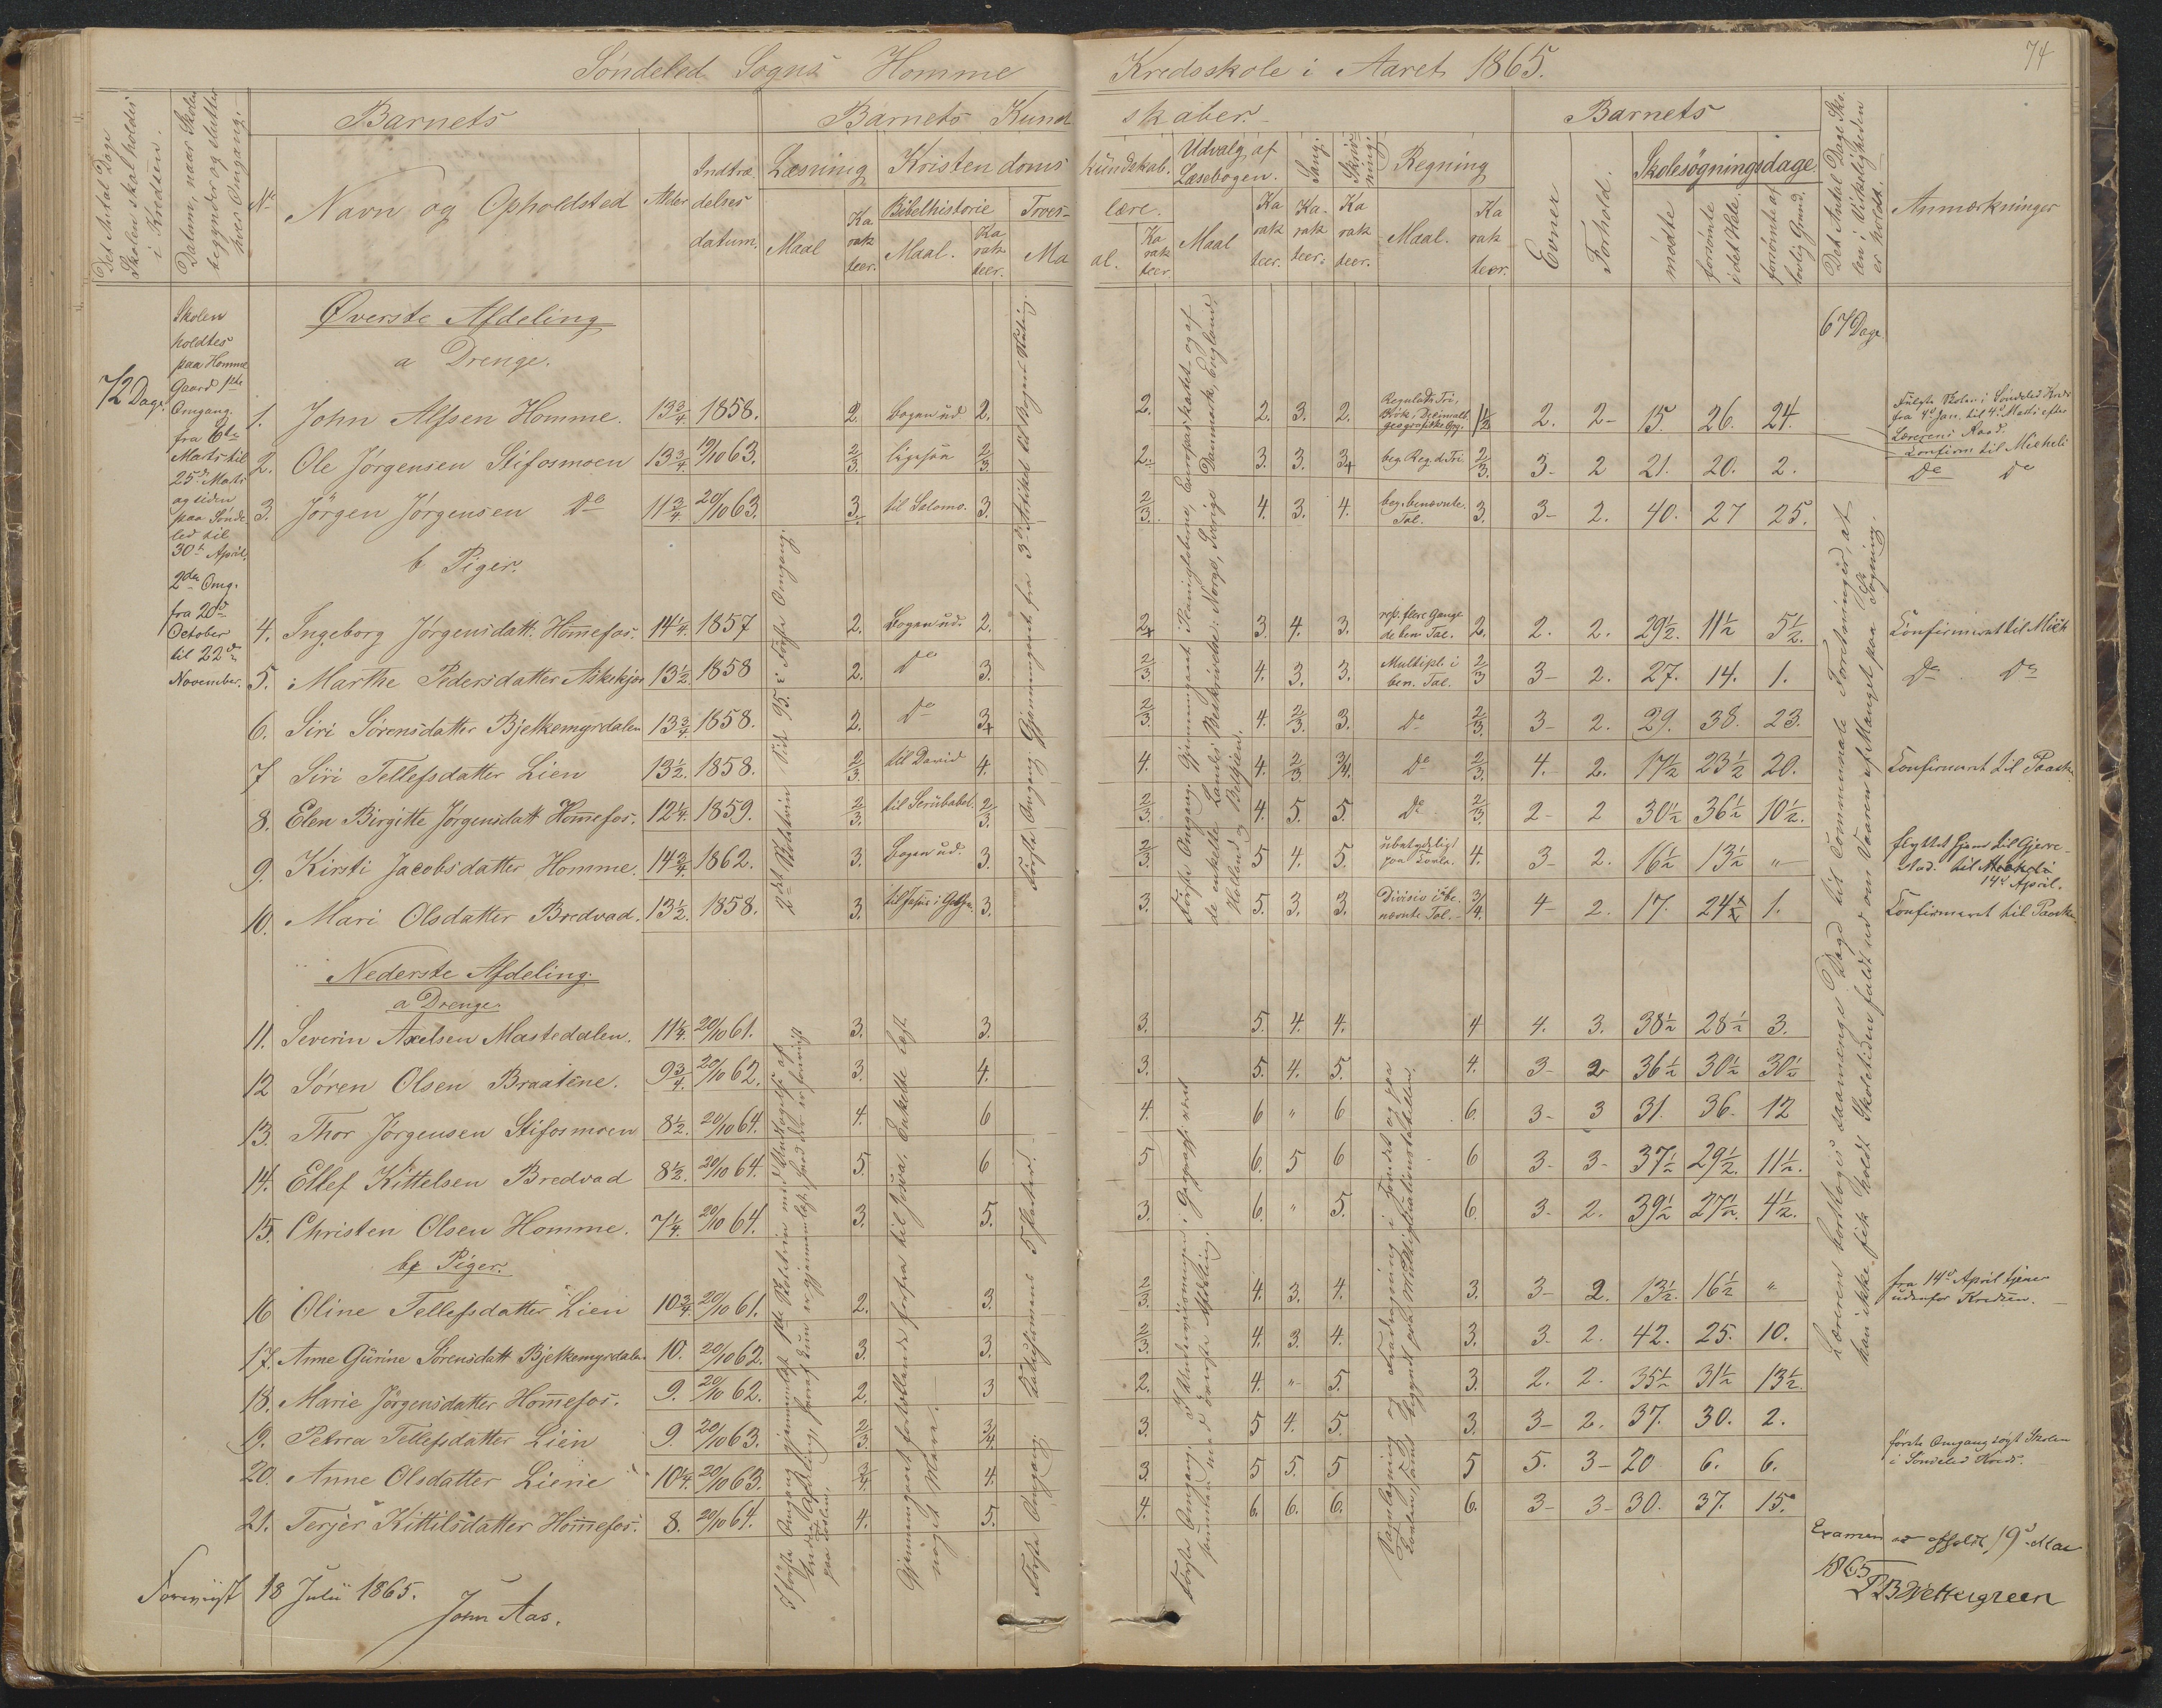 Søndeled Sogns Homme Kredsskole i Aaret 1865.
74
Det Antal Dage Skolen skal holdes i Kredsen.
Datum, naar Skolen begynder og slutter hver Omgang.
Barnets
Barnets Kundskaber.
Barnets
Det Antal Dage Skolen i Virkeligheden er holdt.
Anmærkninger
No
Navn og Opholdsted
Alder
Indtrædelses datum.
Læsning
Kristendomskundskab.
Udvalg af Læsebogen.
Sang.
Skrivning.
Regning
Evner
Forhold.
Skolesøgningsdage.
Maal
Karakteer.
Bibelhistorie
Maal.
Karakteer.
Troeslære.
Maal.
Karakteer
Maal
Karakteer.
Karakteer.
Karakteer.
Maal.
Karakteer.
mødte
forsømte i det Hele.
forsømte af lovlig Grund.
72 Dage.
Skolen
holdtes
paa Homme
Gaard 1ste
Omgang.
fra 6te
Marts til
25de Marts
og siden
paa Sønde
led til
30te April.
2den Omg.
fra 20de
October
til 22de
November.
67 Dage
Øverste Afdeling
a Drenge.
1. John Alfsen Homme. 13 3/4 1858. 2. Bogen ud 2. 2. 2. 3. 2. 2. 2- 15. 26. 24.
Fulgte Skolen i Søndeled Kreds
fra 4de Jan. til 4de Marts efter
Lærerens Raad.
Confirm til Micheli
2. Ole Jørgensen Stifosmoen 13 3/4 19/10 63. 2/3. 2/3. 2. 3. 3. 3/4 beg. Reg. d. Tri. 2/3. 3- 2 21. 20. 2. Do Do
3. Jörgen Jørgensen Do 11 3/4. 20/10 63. 3. til Salomo. 3. 2/3. 4. 3. 4. beg. benævnte Tal. 3. 3- 2. 40. 27 25.
b Piger.
4. Ingeborg Jørgensdatt. Hommefos. 14 1/4. 1857 2. Bogen ud. 2. 3. 4. 3. rep. flere Gange de ben. Tal. 2. 2. 2. 29 1/2. 11 1/2 5 1/2. Confirmeret til Mich
5. Marthe Pedersdatter 13 1/2. 1858 2. Do 3. 2/3. 4. 3. 3. Multipl. i ben. Tal. 2/3 3- 2. 27. 14. 1. Do Do
6. Siri Sørensdatter Bjelkemyrdalen 13 3/4. 1858. 2. Do 2/3. 4. 2/3. 3. Do 2/3. 3- 2. 29. 38. 23.
7 Siri Tellefsdatter Lien 13 1/2. 1858. 2/3. til David 4. 4. 4. 2/3 3/4. Do 2/3. 4. 2. 17 1/2 23 1/2 20. Confirmeret til Paaske
8. Elen Birgitte Jørgensdatt Hommefos. 12 1/4. 1859. 2/3. til Serubabel. 2/3. 2/3. 4. 5. 5. Do 2/3. 2- 2 30 1/2 36 1/2 10 1/2.
9. Kirsti Jacobsdatter Homme. 14 3/4. 1862. 3. Bogen ud. 3. 2/3. 5 4. 5. ubetydeligt paa Tavle. 4. 3- 2. 16 1/2 13 1/2 "
flyttet hjem til Gjerre-
stad. til
14de April.
10. Mari Olsdatter Bredvad. 13 1/2. 1858. 3. til Jesus i Gethse. 3. 3. 5. 3. 3. Division i benævnte Tal. 3/4. 4- 2. 17. 24 1/2 1. Confirmeret til Paaske.
Nederste Afdeling.
a Drenge
11. Severin Axelsen Mastedalen. 11 1/4. 20/10 61. 3. 3. 3. 5. 4. 4. 4 4. 3. 38 1/2 28 1/2 3.
12 Søren Olsen Braatene. 9 3/4. 20/10 62. 3. 4. 3. 5. 4. 5. 4. 3- 2 36 1/2 30 1/2 30 1/2
13. Thor Jørgensen Stifosmoen 8 1/2. 20/10 64. 4. 6 4. 6 " 6 6. 3- 3 31. 36. 12
14. Ellef Kittelsen Bredvad 8 1/2. 20/10 64. 5. 6 5 6. 5 6 6 3- 3- 37 1/2 29 1/2. 11 1/2.
15. Christen Olsen Homme. 7 1/4. 20/10 64. 3. 5. 3. 6. " 5. 6. 3- 2. 39 1/2 27 1/2. 4 1/2.
b Piger.
16 Oline Tellefsdatter Lien 10 3/4 20/10 61. 2. 3. 2/3. 4. 3. 4. 3. 3- 2. 13 1/2. 16 1/2 "
fra 14de April tjener
udenfor Kredsen.
17. Anne Gurine Sørensdatt Bjelkemyrdalen 10. 20/10 62. 3. 3. 2/3. 4. 3. 4. 3. 3. 2. 42. 25. 10.
18. Marie Jörgensdatter Hommefos. 9. 20/10 62. 2. 3 2. 4. " 5. 3. 2. 2. 35 1/2 31 1/2 13 1/2.
19. Petrea Tellefsdatter Lien 9. 20/10 63. 2/3. 3/4. 3. 5 4. 5. 3. 3- 2. 37. 30. 2.
20. Anne Olsdatter Liene 10 1/4. 20/10 63. 3/4. 4. 3. 5 5. 5 5 5. 3- 20 6. 6.
første Omgang søgt Skolen
i Søndeled Kreds.
21. Terjer Kittilsdatter Hommefos. 8. 20/10 64. 4. 5. 4. 6. 6. 6. 6. 3- 3- 30. 37. 15.
2det Skoletrin Side 95. i Første Omgang.
Første Omgang Gjennemgaaet fra 3die Artikel til Bogens Slutning.
Første Omgang. Gjennemgaaet Planigloberne, Europaskartet og af
de enkelte Landes Beskrivelse: Norge, Sverige, Danmark, England,
Holland og Belgien.
Gjennemgaaet fortællende forfra til Josva. Enkelte læst
noget mere.
Første Omgang. Katechismens 5 Parter.
Første Omgang. I Undervisningen i Geografi været
sammen med øverste Afdeling.
Læreren borttoges saamange Dage til Communale Forretninger, at
han ikke fik holdt Skoletiden fuldt ud om Vaaren af Mangel paa Søgning.
Foreviist 18 Julii 1865.
John Aas.
Examen afholdt 19de Mai
1865
Wettergreen